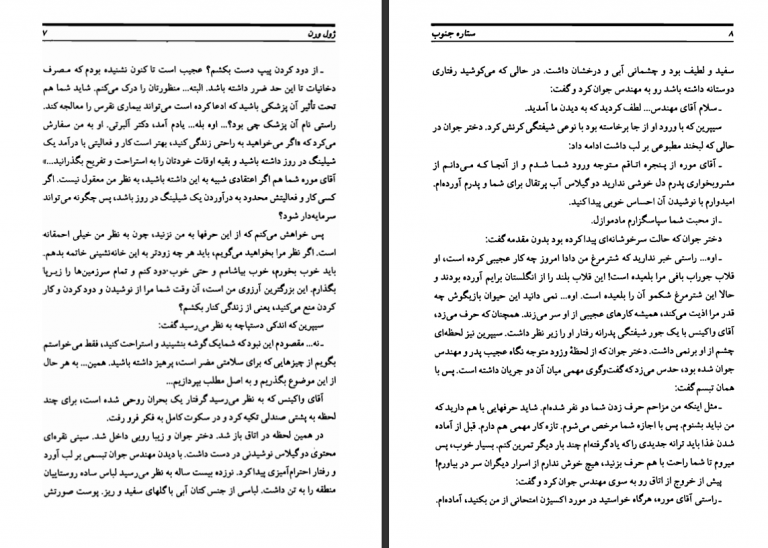 ژول ورن ۷
ـ از دود کردن پیپ دست بکشم؟ عجیب است تا کنون نشنیده بودم که مصرف
دخانیات تا این حد ضرر داشته باشد. البته... منظورتان را درک می‌کنم. شاید شما هم
تحت تأثیر آن پزشکی باشید که ادعا کرده است می‌تواند بیماری نقرس را معالجه کند.
راستی نام آن پزشک چی بود؟... اوه بله... یادم آمد، دکتر آلبرتی. او به من سفارش
می‌کرد که «اگر می‌خواهید به راحتی زندگی کنید، بهتر است کار و فعالیتی با درآمد یک
شیلینگ در روز داشته باشید و بقیه اوقات خودتان را به استراحت و تفریح بگذرانید...»
آقای موره شما هم اگر اعتقادی شبیه به این داشته باشید، به نظر من معقول نیست. اگر
کسی کار و فعالیتش محدود به درآوردن یک شیلینگ در روز باشد، پس چگونه می‌تواند
سرمایه‌دار شود؟
پس خواهش می‌کنم که از این حرفها به من نزنید، چون به نظر من خیلی احمقانه
است. اگر نظر مرا بخواهید می‌گویم، باید هر چه زودتر به این خانه‌نشینی خاتمه بدهم.
باید خوب بخورم، خوب بیاشامم و حتی خوب دود کنم و تمام سرزمین‌ها را زیرپا
بگذارم. این بزرگترین آرزوی من است، آن وقت شما مرا از نوشیدن و دود کردن و کار
کردن منع می‌کنید، یعنی از زندگی کنار بکشم؟
سیپرین که اندکی دستپاچه به نظر می‌رسید گفت:
ـ نه... مقصودم این نبود که شما یک گوشه بنشینید و استراحت کنید، فقط می‌خواستم
بگویم از چیزهایی که برای سلامتی مضر است، پرهیز داشته باشید. همین... به هر حال
از این موضوع بگذریم و به اصل مطلب بپردازیم...
آقای واکینس که به نظر می‌رسید گرفتار یک بحران روحی شده است، برای چند
لحظه به پشتی صندلی تکیه کرد و در سکوت کامل به فکر فرو رفت.
در همین لحظه در اتاق باز شد. دختر جوان و زیبا رویی داخل شد. سینی نقره‌ای
محتوی دو گیلاس نوشیدنی در دست داشت. با دیدن مهندس جوان تبسمی بر لب آورد
و رفتار احترام‌آمیزی پیدا کرد. نوزده بیست ساله به نظر می‌رسید لباس ساده روستاییان
منطقه را به تن داشت. لباسی از جنس کتان آبی با گلهای سفید و ریز. پوست صورتش
۸ ستاره جنوب
سفید و لطیف بود و چشمانی آبی و درخشان داشت. در حالی که می‌کوشید رفتاری
دوستانه داشته باشد رو به مهندس جوان کرد و گفت:
ـ سلام آقای مهندس... لطف کردید که به دیدن ما آمدید.
سیپرین که با ورود او از جا برخاسته بود با نوعی شیفتگی کرنش کرد. دختر جوان در
حالی که لبخند مطبوعی بر لب داشت ادامه داد:
ـ آقای موره از پنجره اتاقم متوجه ورود شما شدم و از آنجا که می‌دانم از
مشروبخواری پدرم دل خوشی ندارید دو گیلاس آب پرتقال برای شما و پدرم آورده‌ام.
امیدوارم با نوشیدن آن احساس خوبی پیدا کنید.
ـ از محبت شما سپاسگزارم مادموازل.
دختر جوان که حالت سرخوشانه‌ای پیدا کرده بود بدون مقدمه گفت:
ـ اوه... راستی خبر ندارید که شترمرغ من دادا امروز چه کار عجیبی کرده است، او
قلاب جوراب بافی مرا بلعیده است! این قلاب بلند را از انگلستان برایم آورده بودند و
حالا این شترمرغ شکمو آن را بلعیده است. اوه... نمی دانید این حیوان بازیگوش چه
قدر مرا اذیت می‌کند، همیشه کارهای عجیبی از او سر می‌زند. همچنان که حرف می‌زد،
آقای واکینس با یک جور شیفتگی پدرانه رفتار او را زیر نظر داشت. سیپرین نیز لحظه‌ای
چشم از او برنمی داشت. دختر جوان که از لحظهٔ ورود متوجه نگاه عجیب پدر و مهندس
جوان شده بود، حدس می‌زد که گفت‌وگوی مهمی میان آن دو جریان داشته است. پس با
همان تبسم گفت:
ـ مثل اینکه من مزاحم حرف زدن شما دو نفر شده‌ام. شاید حرفهایی با هم دارید که
من نباید بشنوم. پس با اجازه شما مرخص می‌شوم. تازه کار مهمی هم دارم. قبل از آماده
شدن غذا باید ترانه جدیدی را که یاد گرفته‌ام چند بار دیگر تمرین کنم. بسیار خوب، پس
میروم تا شما راحت با هم حرف بزنید، هیچ خوش ندارم از اسرار دیگران سر در بیاورم!
پیش از خروج از اتاق رو به سوی مهندس جوان کرد و گفت:
ـ راستی آقای موره، هرگاه خواستید در مورد اکسیژن امتحانی از من بکنید، آماده‌ام.